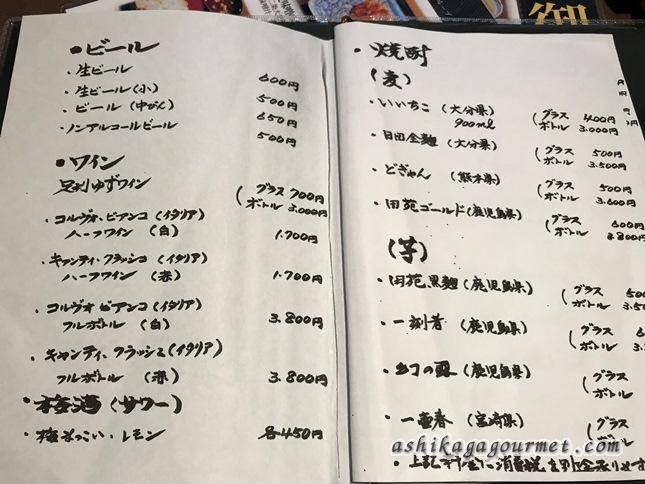 ・ビール
・生ビール 600円
・生ビール(小) 500円
・ビール(中びん) 650円
・ノンアルコールビール 500円
・ワイン
足利ゆずワイン (グラス 700円
ボトル 3.000円
・コルヴォ・ビアンコ(イタリア)
ハーフワイン(白) 1.700円
・キャンティ・クラッシコ(イタリア)
ハーフワイン(赤) 1.700円
・コルヴォ ビアンコ(イタリア)
フルボトル(白) 3.800円
・キャンティ、クラッシュ(イタリア)
フルボトル(赤) 3.800円
・梅酒(サワー)
・梅まっこい・レモン 各450円
・焼酎
(麦)
・いいちこ(大分県) (グラス 400円
900ml ボトル 3.000円
・日田全麹(大分県) (グラス 500円
ボトル 3.500円
・どぎゃん(熊本県) (グラス 500円
ボトル 3.600円
・田苑ゴールド(鹿児島県) (グラス 600円
ボトル 3.800円
(芋)
・田苑 黒麹(鹿児島県) (グラス 500
ボトル 3.50
・一刻者(鹿児島県) (グラス 6
ボトル 3.
(鹿児島県) (グラス
ボトル
・一壷春(宮崎県) (グラス
ボトル
・上記料金に消費税を別途承ります
ashikagagourmet.com